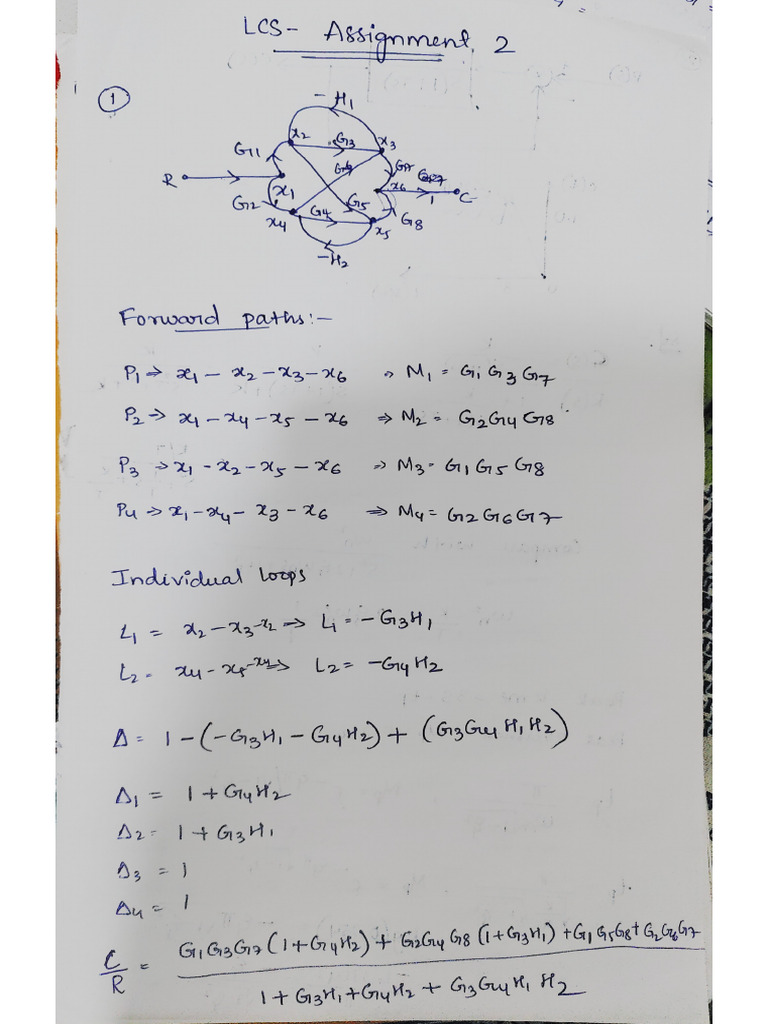 LCS - Assignment 2
①
-H1
x2 G3 x3
G1 G7
G6
R x1 x6 1 C
G2 G5
G4 G8
x4 x5
-H2
Forward paths:-
P1 → x1 - x2 - x3 - x6 ⇒ M1 = G1 G3 G7
P2 → x1 - x4 - x5 - x6 ⇒ M2 = G2 G4 G8
P3 → x1 - x2 - x5 - x6 ⇒ M3 = G1 G5 G8
P4 → x1 - x4 - x3 - x6 ⇒ M4 = G2 G6 G7
Individual loops
L1 = x2 - x3 - x2 ⇒ L1 = -G3H1
L2 = x4 - x5 - x4 ⇒ L2 = -G4H2
Δ = 1 - (-G3H1 - G4H2) + (G3G4H1H2)
Δ1 = 1 + G4H2
Δ2 = 1 + G3H1
Δ3 = 1
Δ4 = 1
C/R = G1G3G7(1+G4H2) + G2G4G8(1+G3H1) + G1G5G8 + G2G6G7
1 + G3H1 + G4H2 + G3G4H1H2